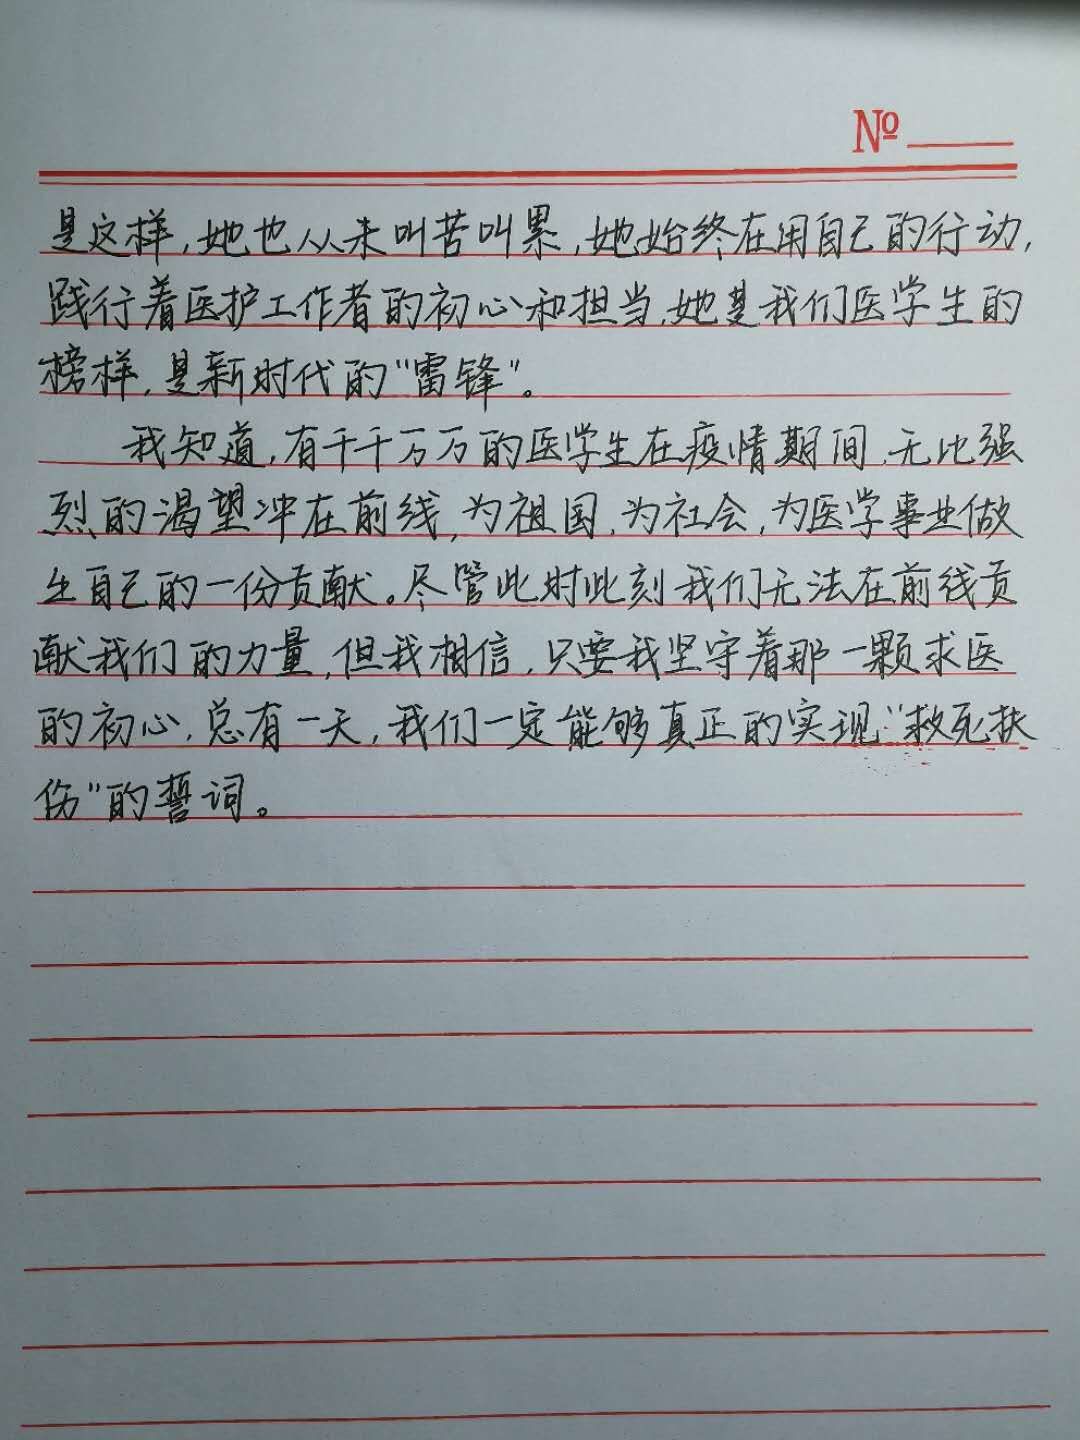 Nº
是这样,她也从未叫苦叫累,她始终在用自己的行动,
践行着医护工作者的初心和担当,她是我们医学生的
榜样,是新时代的“雷锋”。
我知道,有千千万万的医学生在疫情期间,无比强
烈的渴望冲在前线,为祖国,为社会,为医学事业做
出自己的一份贡献。尽管此时此刻我们无法在前线贡
献我们的力量,但我相信,只要我坚守着那一颗求医
的初心,总有一天,我们一定能够真正的实现“救死扶
伤”的誓词。